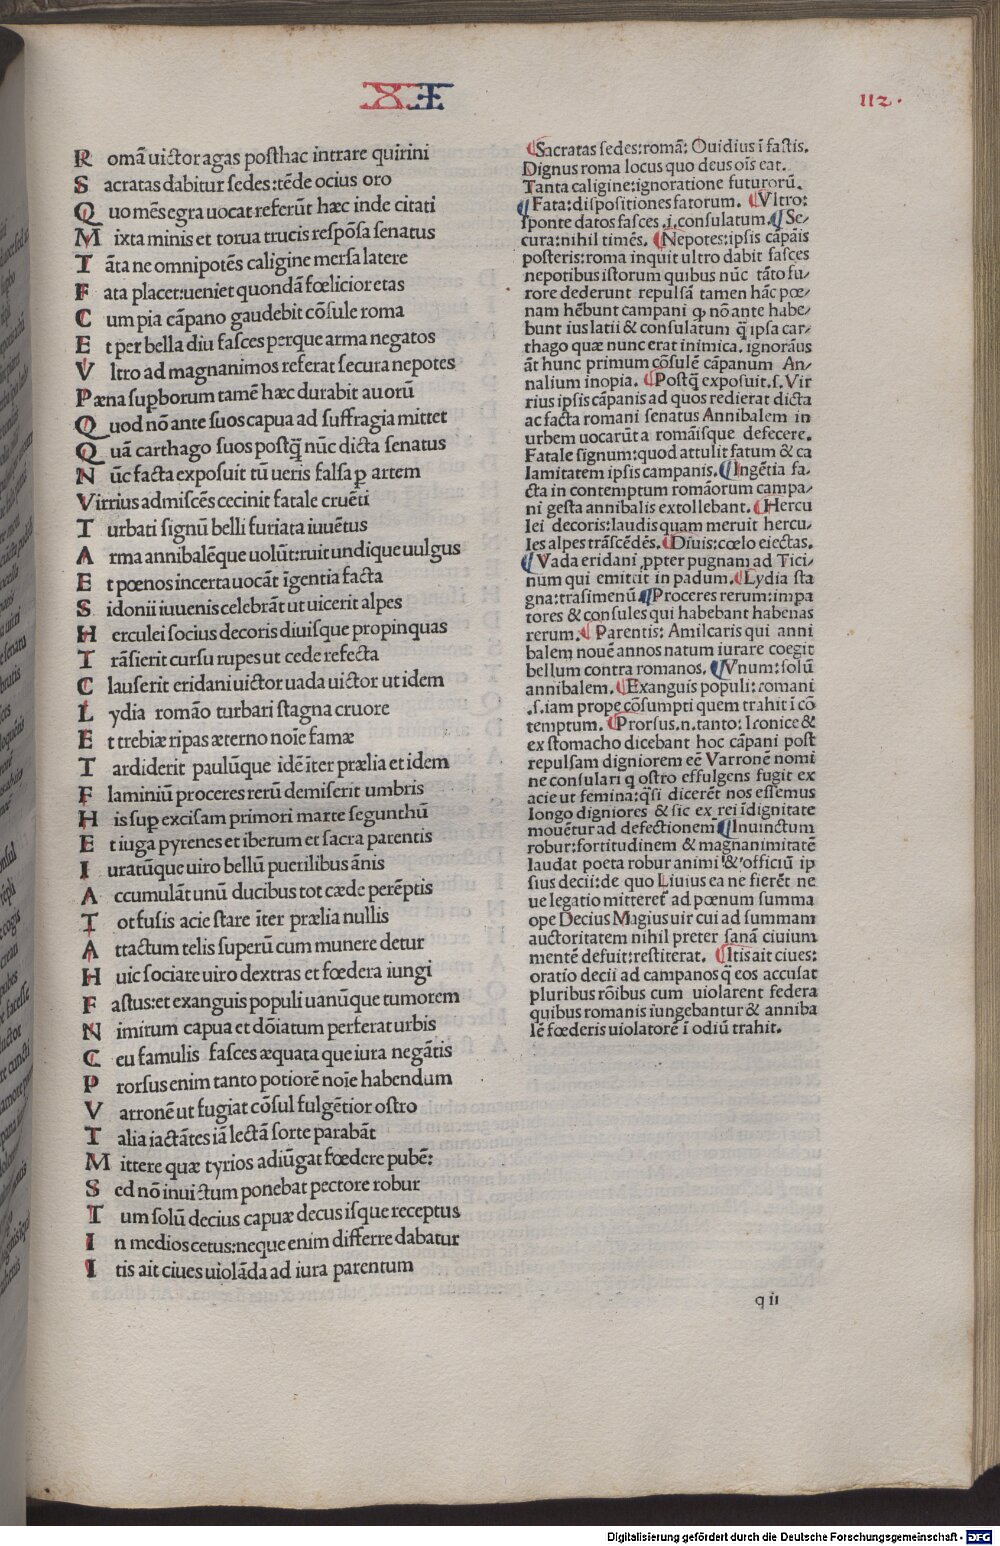 XI
112.
R omā uictor agas posthac intrare quirini
S acratas dabitur sedes: tēde ocius oro
Q uo mēs egra uocat referūt hæc inde citati
M ixta minis et torua trucis respōsa senatus
T āta ne omnipotēs caligine mersa latere
F ata placet: ueniet quondā fœlicior etas
C um pia cāpano gaudebit cōsule roma
E t per bella diu fasces perque arma negatos
V ltro ad magnanimos referat secura nepotes
P æna suꝑborum tamē hæc durabit auorū
Q uod nō ante suos capua ad suffragia mittet
Q uā carthago suos postq̄ nūc dicta senatus
N ūc facta exposuit tū ueris falsa ꝑ artem
V irrius admiscēs cecinit fatale cruēti
T urbati signū belli furiata iuuētus
A rma annibalēque uolūt: ruit undique uulgus
E t pœnos incerta uocāt īgentia facta
S idonii iuuenis celebrāt ut uicerit alpes
H erculei socius decoris diuisque propinquas
T rāsierit cursu rupes ut cede refecta
C lauserit eridani uictor uada uictor ut idem
L ydia romāo turbari stagna cruore
E t trebiæ ripas æterno noīe famæ
T ardiderit paulūque idē īter prælia et idem
F laminiū proceres rerū demiserit umbris
H is suꝑ excisam primori marte segunthū
E t iuga pyrenes et iberum et sacra parentis
I uratūque uiro bellū puerilibus ānis
A ccumulāt unū ducibus tot cæde perēptis
T ot fusis acie stare īter prælia nullis
A ttactum telis superū cum munere detur
H uic sociare uiro dextras et fœdera iungi
F astus: et exanguis populi uanūque tumorem
N imirum capua et dōiatum perferat urbis
C eu famulis fasces æquata que iura negātis
P rorsus enim tanto potiorē noīe habendum
V arronē ut fugiat cōsul fulgētior ostro
T alia iactātes iā lectā sorte parabāt
M ittere quæ tyrios adiūgat fœdere pubē:
S ed nō inuictum ponebat pectore robur
T um solū decius capuæ decus isque receptus
I n medios cetus: neque enim differre dabatur
I tis ait ciues uiolāda ad iura parentum
Sacratas sedes: romā: Ouidius ī fastis.
Dignus roma locus quo deus oīs eat.
Tanta caligine: ignoratione futurorū.
Fata: dispositiones fatorum. Vltro:
sponte datos fasces .i. consulatum. Se/
cura: nihil timēs. Nepotes: ipsis cāpāis
posteris: roma inquit ultro dabit fasces
nepotibus istorum quibus nūc tāto fu/
rore dederunt repulsā tamen hāc pœ/
nam hēbunt campani qɔ nō ante habe/
bunt ius latii & consulatum q̄ ipsa car/
thago quæ nunc erat inimica. ignorāus
āt hunc primum cōsulē cāpanum An/
nalium inopia. Postq̄ exposuit. s. Vir
rius ipsis cāpanis ad quos redierat dicta
ac facta romani senatus Annibalem in
urbem uocarūt a romāisque defecere.
Fatale signum: quod attulit fatum & ca
lamitatem ipsis campanis. Ingētia fa/
cta in contemptum romāorum campa/
ni gesta annibalis extollebant. Hercu
lei decoris: laudis quam meruit hercu/
les alpes trāscēdēs. Diuis: cœlo eiectas.
Vada eridani ꝓpter pugnam ad Tici/
num qui emittit in padum. Lydia sta
gna: trasimenū Proceres rerum: impa
tores & consules qui habebant habenas
rerum. Parentis: Amilcaris qui anni
balem nouē annos natum iurare coegit
bellum contra romanos. Vnum: solū
annibalem. Exanguis populi: romani
.s. iam prope cōsumpti quem trahit ī cō
temptum. Prorsus. n. tanto: Ironice &
ex stomacho dicebant hoc cāpani post
repulsam digniorem eē Varronē nomi
ne consulari q̄ ostro effulgens fugit ex
acie ut femina: q̄si dicerēt nos essemus
longo digniores & sic ex rei īdignitate
mouētur ad defectionem Inuinctum
robur: fortitudinem & magnanimitatē
laudat poeta robur animi & officiū ip
sius decii: de quo Liuius ea ne fierēt ne
ue legatio mitteret̄ ad pœnum summa
ope Decius Magius uir cui ad summam
auctoritatem nihil preter sanā ciuium
mentē defuit: restiterat. Itis ait ciues:
oratio decii ad campanos q̄ eos accusat
pluribus rōibus cum uiolarent federa
quibus romanis iungebantur & anniba
lē fœderis uiolatorē ī odiū trahit.
q ii
Digitalisierung gefördert durch die Deutsche Forschungsgemeinschaft - DFG